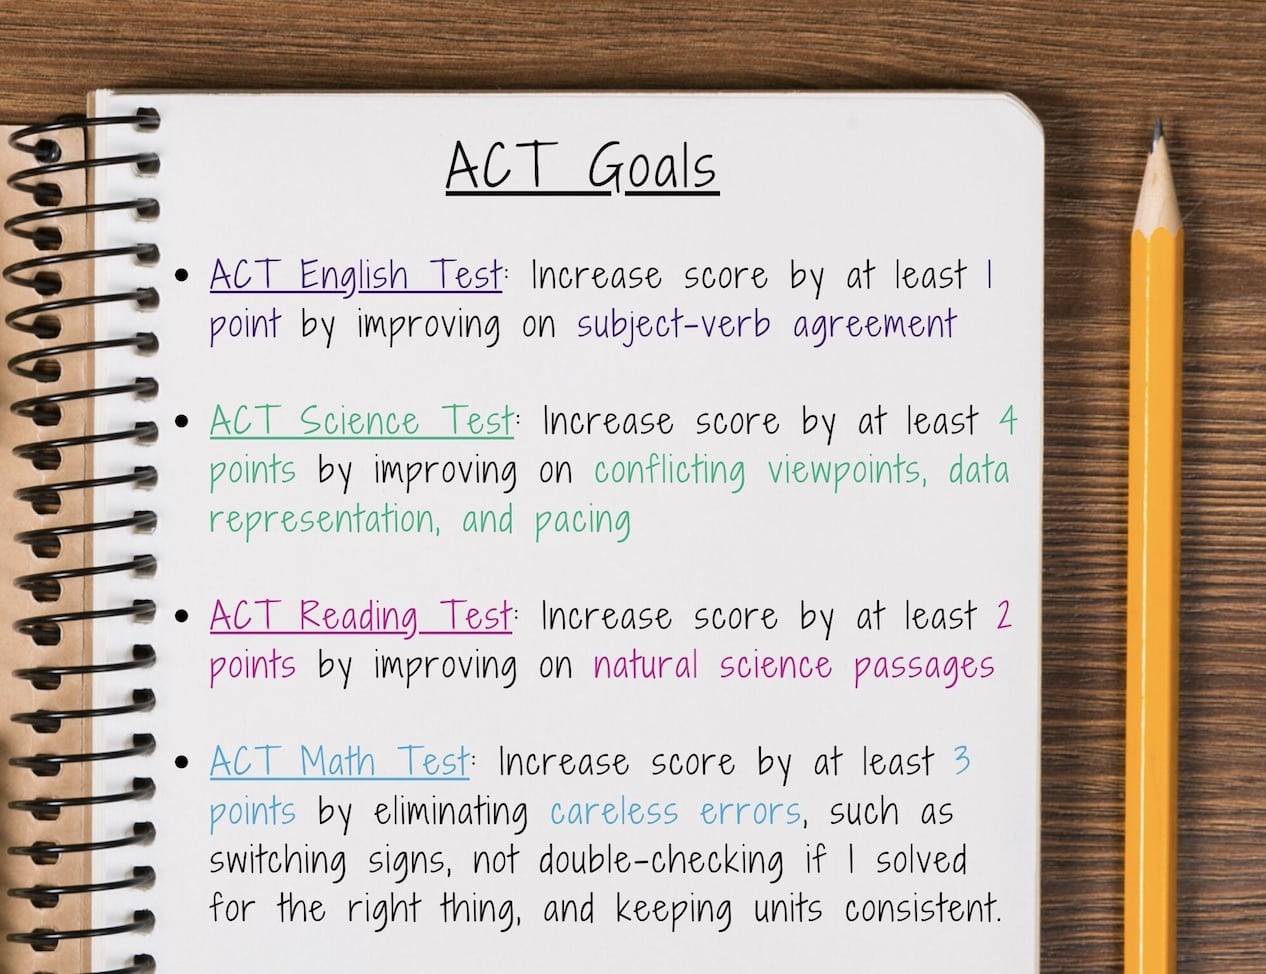 ACT Goals
ACT English Test: Increase score by at least 1
point by improving on subject-verb agreement
ACT Science Test: Increase score by at least 4
points by improving on conflicting viewpoints, data
representation, and pacing
ACT Reading Test: Increase score by at least 2
points by improving on natural science passages
ACT Math Test: Increase score by at least 3
points by eliminating careless errors, such as
switching signs, not double-checking if I solved
for the right thing, and keeping units consistent.